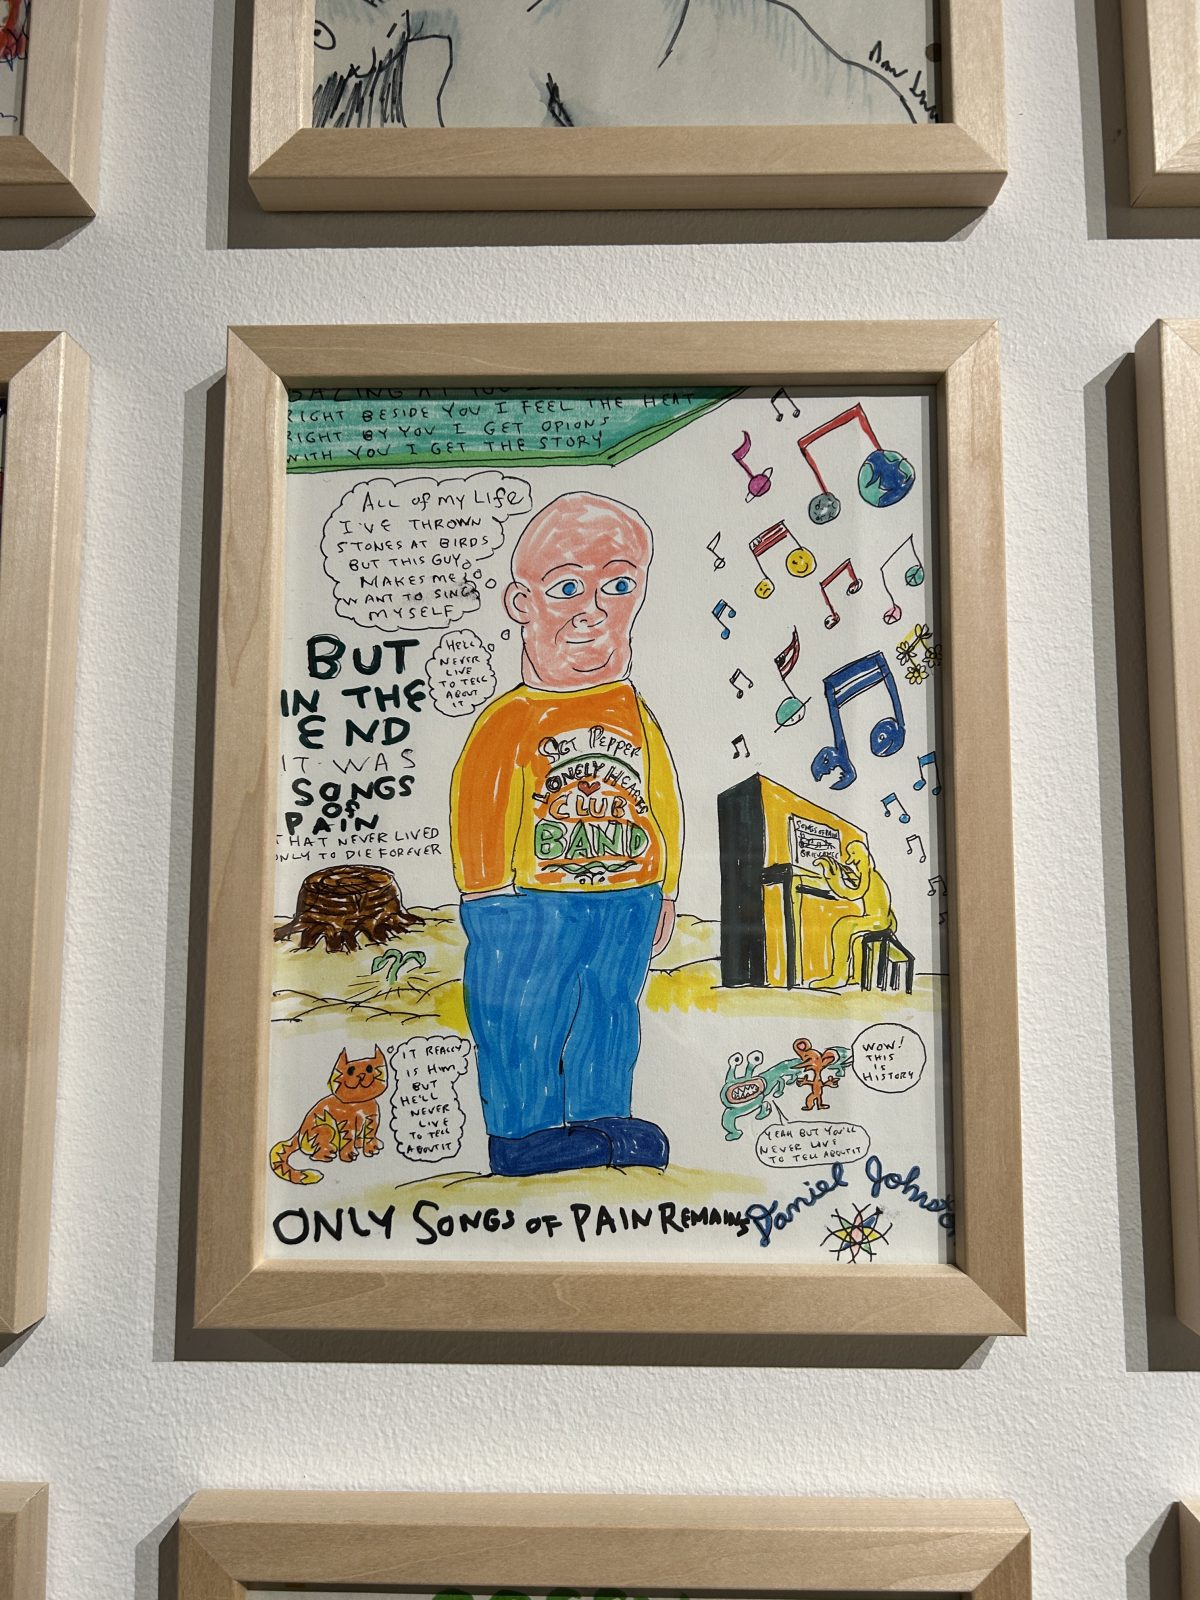 GAZING AT YOU
RIGHT BESIDE YOU I FEEL THE HEAT
RIGHT BY YOU I GET OPIONS
WITH YOU I GET THE STORY
ALL OF MY LIFE
I'VE THROWN
STONES AT BIRDS
BUT THIS GUY
MAKES ME
WANT TO SING
MYSELF
HE'LL
NEVER
LIVE
TO TELL
ABOUT
IT
BUT
IN THE
END
IT WAS
SONGS
OF
PAIN
THAT NEVER LIVED
ONLY TO DIE FOREVER
SGT PEPPER
LONELY HEARTS
CLUB
BAND
SONGS OF PAIN
IT REALLY
IS HIM
BUT
HE'LL
NEVER
LIVE
TO TELL
ABOUT IT
WOW!
THIS
IS
HISTORY
YEAH BUT YOU'LL
NEVER LIVE
TO TELL ABOUT IT
ONLY SONGS OF PAIN REMAINS
Daniel Johnston